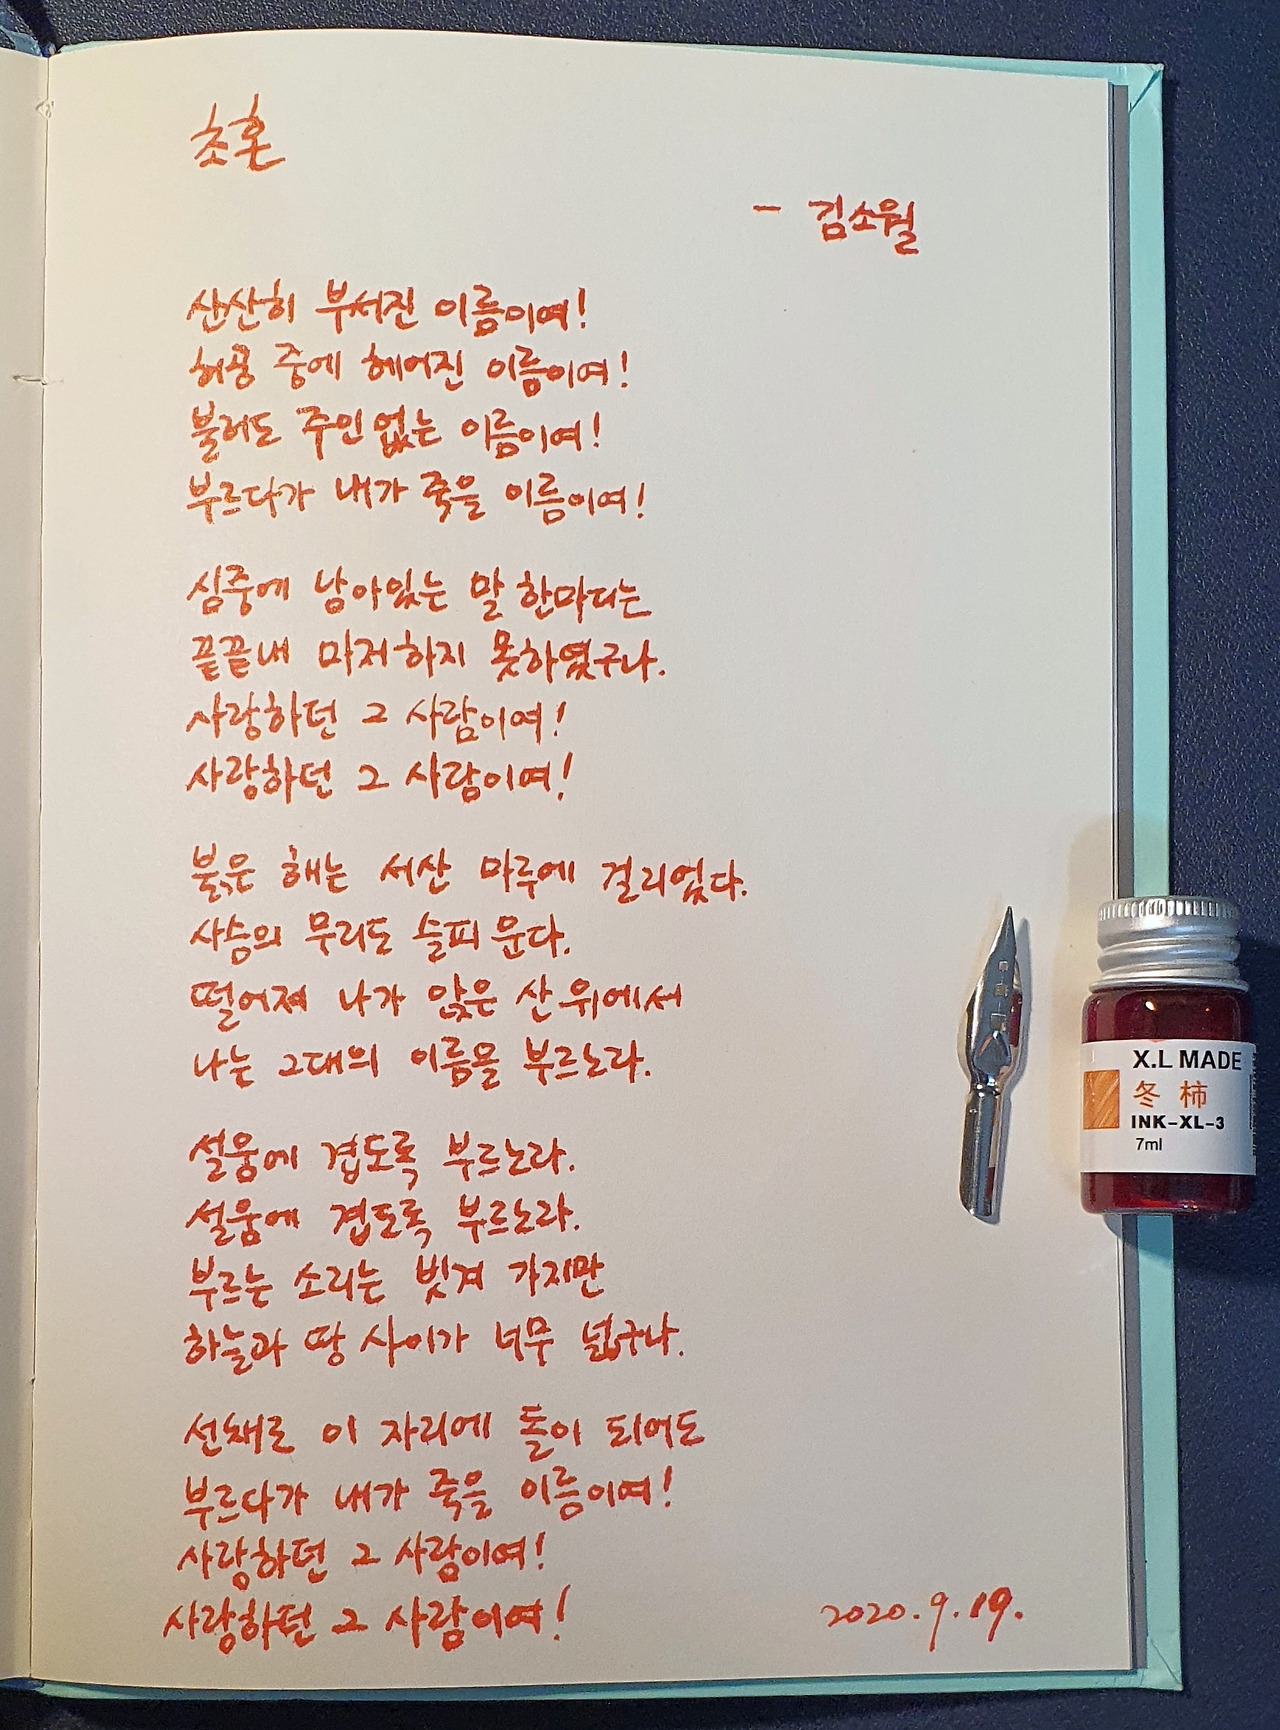 초혼
- 김소월
산산히 부서진 이름이여!
허공 중에 헤어진 이름이여!
불러도 주인 없는 이름이여!
부르다가 내가 죽을 이름이여!
심중에 남아있는 말 한마디는
끝끝내 마저 하지 못하였구나.
사랑하던 그 사람이여!
사랑하던 그 사람이여!
붉은 해는 서산 마루에 걸리었다.
사슴의 무리도 슬피 운다.
떨어져 나가 앉은 산 위에서
나는 그대의 이름을 부르노라.
설움에 겹도록 부르노라.
설움에 겹도록 부르노라.
부르는 소리는 빗겨 가지만
하늘과 땅 사이가 너무 넓구나.
선채로 이 자리에 돌이 되어도
부르다가 내가 죽을 이름이여!
사랑하던 그 사람이여!
사랑하던 그 사람이여!
2020.9.19.
X.L MADE
冬 柿
INK-XL-3
7ml